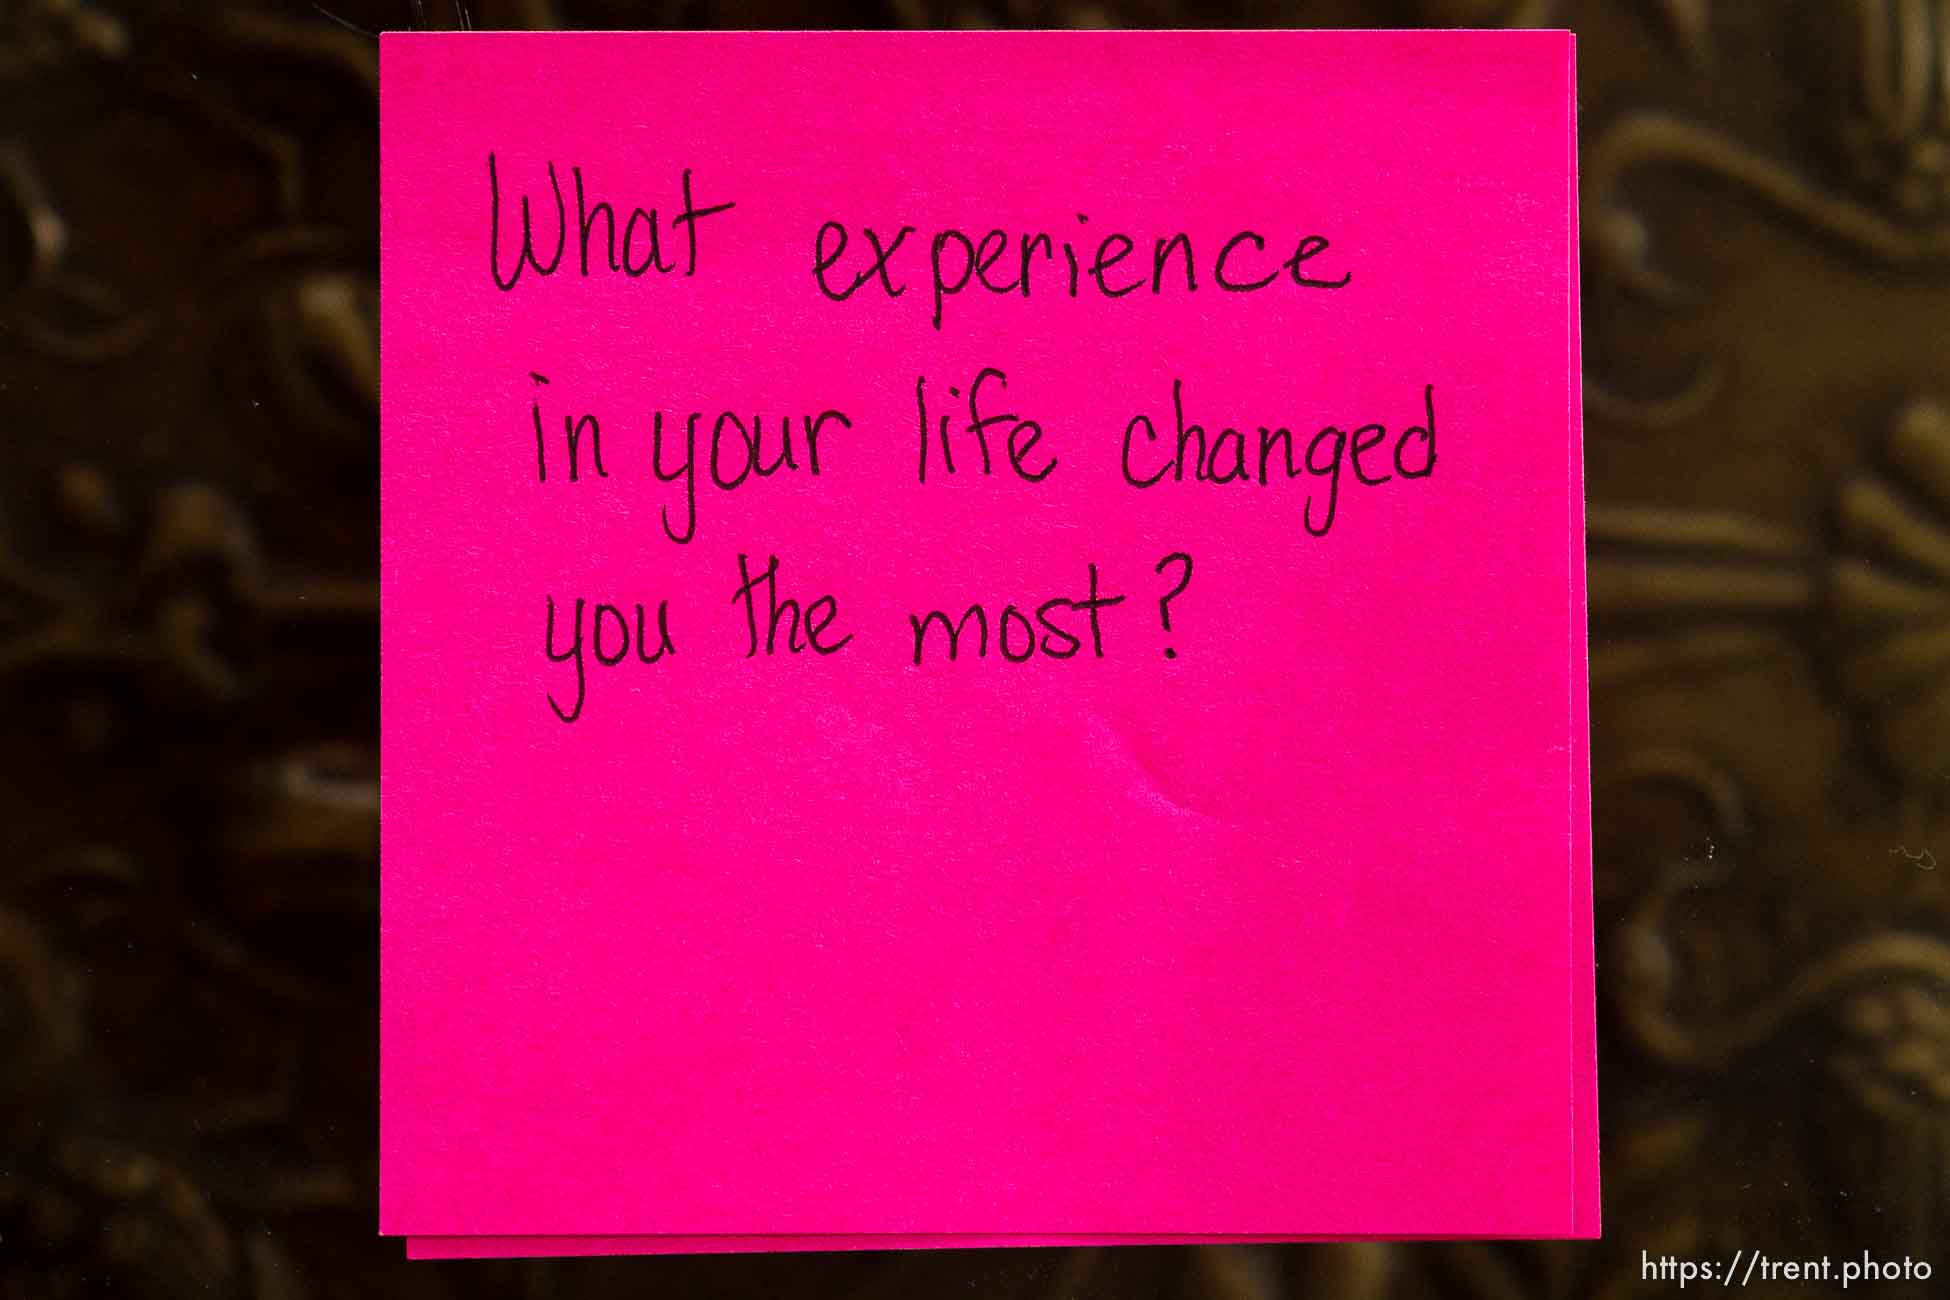 What experience
in your life changed
you the most?
https://trent.photo